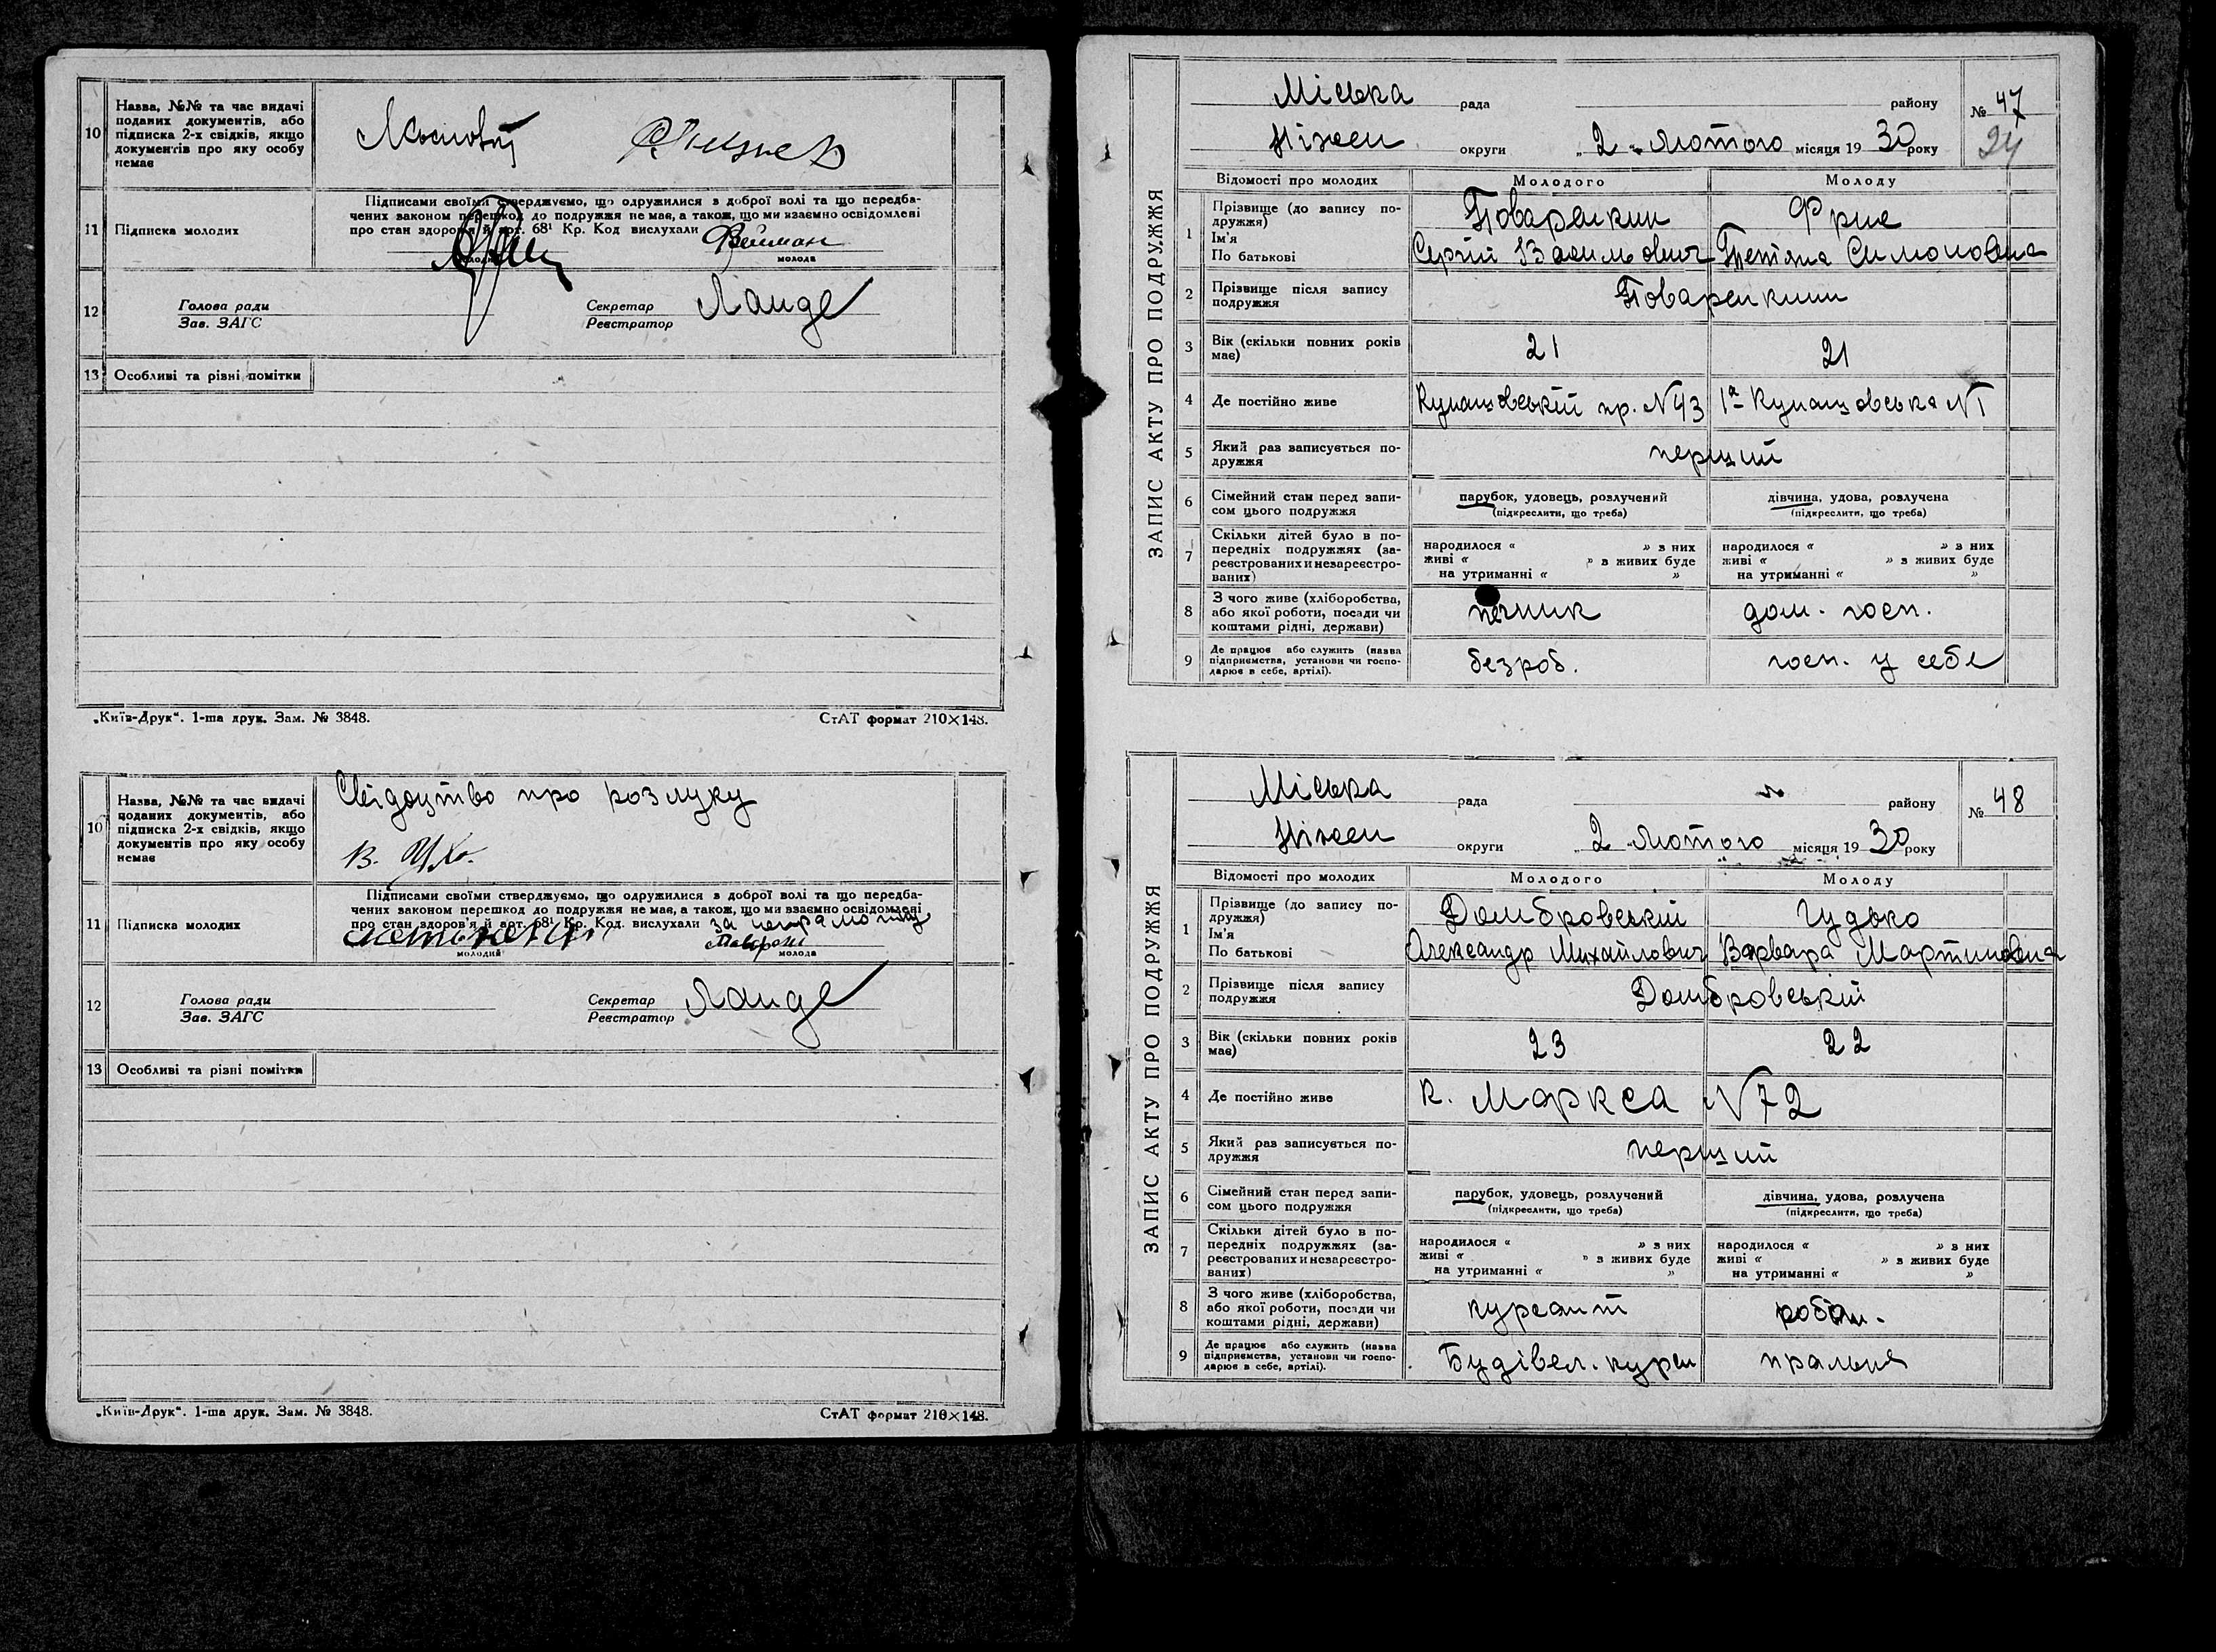 10
Назва, №№ та час видачі
поданих документів, або
підписка 2-х свідків, якщо
документів про яку особу
немає
11
Підписка молодих
Підписами своїми стверджуємо, що одружилися з доброї волі та що передба-
чених законом перешкод до подружжя не має, а також, що ми взаємно освідомлені
про стан здоров'я й арт. 68¹ Кр. Код вислухали
Фейман
молода
12
Голова ради
Зав. ЗАГС
Секретар
Реєстратор
Ланде
13
Особливі та різні помітки
„Київ-Друк“. 1-ша друк. Зам. № 3848.
СтАТ формат 210×148.
10
Назва, №№ та час видачі
поданих документів, або
підписка 2-х свідків, якщо
документів про яку особу
немає
Свідоцтво про розлуку
11
Підписка молодих
Підписами своїми стверджуємо, що одружилися з доброї волі та що передба-
чених законом перешкод до подружжя не має, а також, що ми взаємно освідомлені
про стан здоров'я й арт. 68¹ Кр. Код. вислухали
молодий
молода
12
Голова ради
Зав. ЗАГС
Секретар
Реєстратор
Ланде
13
Особливі та різні помітки
„Київ-Друк“. 1-ша друк. Зам. № 3848.
СтАТ формат 210×148.
ЗАПИС АКТУ ПРО ПОДРУЖЖЯ
Міська рада району
№ 47
Ніжен округи „2“ Лютого місяця 1930 року
24
Відомості про молодих
Молодого
Молоду
1
Прізвище (до запису по-
дружжя)
Ім'я
По батькові
Фрие
Сергій
Симоновна
2
Прізвище після запису
подружжя
3
Вік (скільки повних років
має)
21
21
4
Де постійно живе
Кунашовський пр. N 43
1ª Кунашовська N 1
5
Який раз записується по-
дружжя
перший
6
Сімейний стан перед запи-
сом цього подружжя
парубок, удовець, розлучений
(підкреслити, що треба)
дівчина, удова, розлучена
(підкреслити, що треба)
7
Скільки дітей було в по-
передніх подружжях (за-
реєстрованих и незареєстро-
ваних)
народилося « » з них
живі « » з живих буде
на утриманні « »
народилося « » з них
живі « » з живих буде
на утриманні « »
8
З чого живе (хліборобства,
або якої роботи, посади чи
коштами рідні, держави)
печник
дом. госп.
9
Де працює або служить (назва
підприємства, установи чи госпо-
дарює в себе, артілі).
безроб.
госп. у себе
ЗАПИС АКТУ ПРО ПОДРУЖЖЯ
Міська рада району
№ 48
Ніжен округи „2“ Лютого місяця 1930 року
Відомості про молодих
Молодого
Молоду
1
Прізвище (до запису по-
дружжя)
Ім'я
По батькові
Домбровський
Гудько
Олександр Михайлович
Варвара Мартиновна
2
Прізвище після запису
подружжя
Домбровській
3
Вік (скільки повних років
має)
23
22
4
Де постійно живе
К. Маркса N 72
5
Який раз записується по-
дружжя
перший
6
Сімейний стан перед запи-
сом цього подружжя
парубок, удовець, розлучений
(підкреслити, що треба)
дівчина, удова, розлучена
(підкреслити, що треба)
7
Скільки дітей було в по-
передніх подружжях (за-
реєстрованих и незареєстро-
ваних)
народилося « » з них
живі « » з живих буде
на утриманні « »
народилося « » з них
живі « » з живих буде
на утриманні « »
8
З чого живе (хліборобства,
або якої роботи, посади чи
коштами рідні, держави)
курсант
робітн.
9
Де працює або служить (назва
підприємства, установи чи госпо-
дарює в себе, артілі).
Будівел. курси
пральня